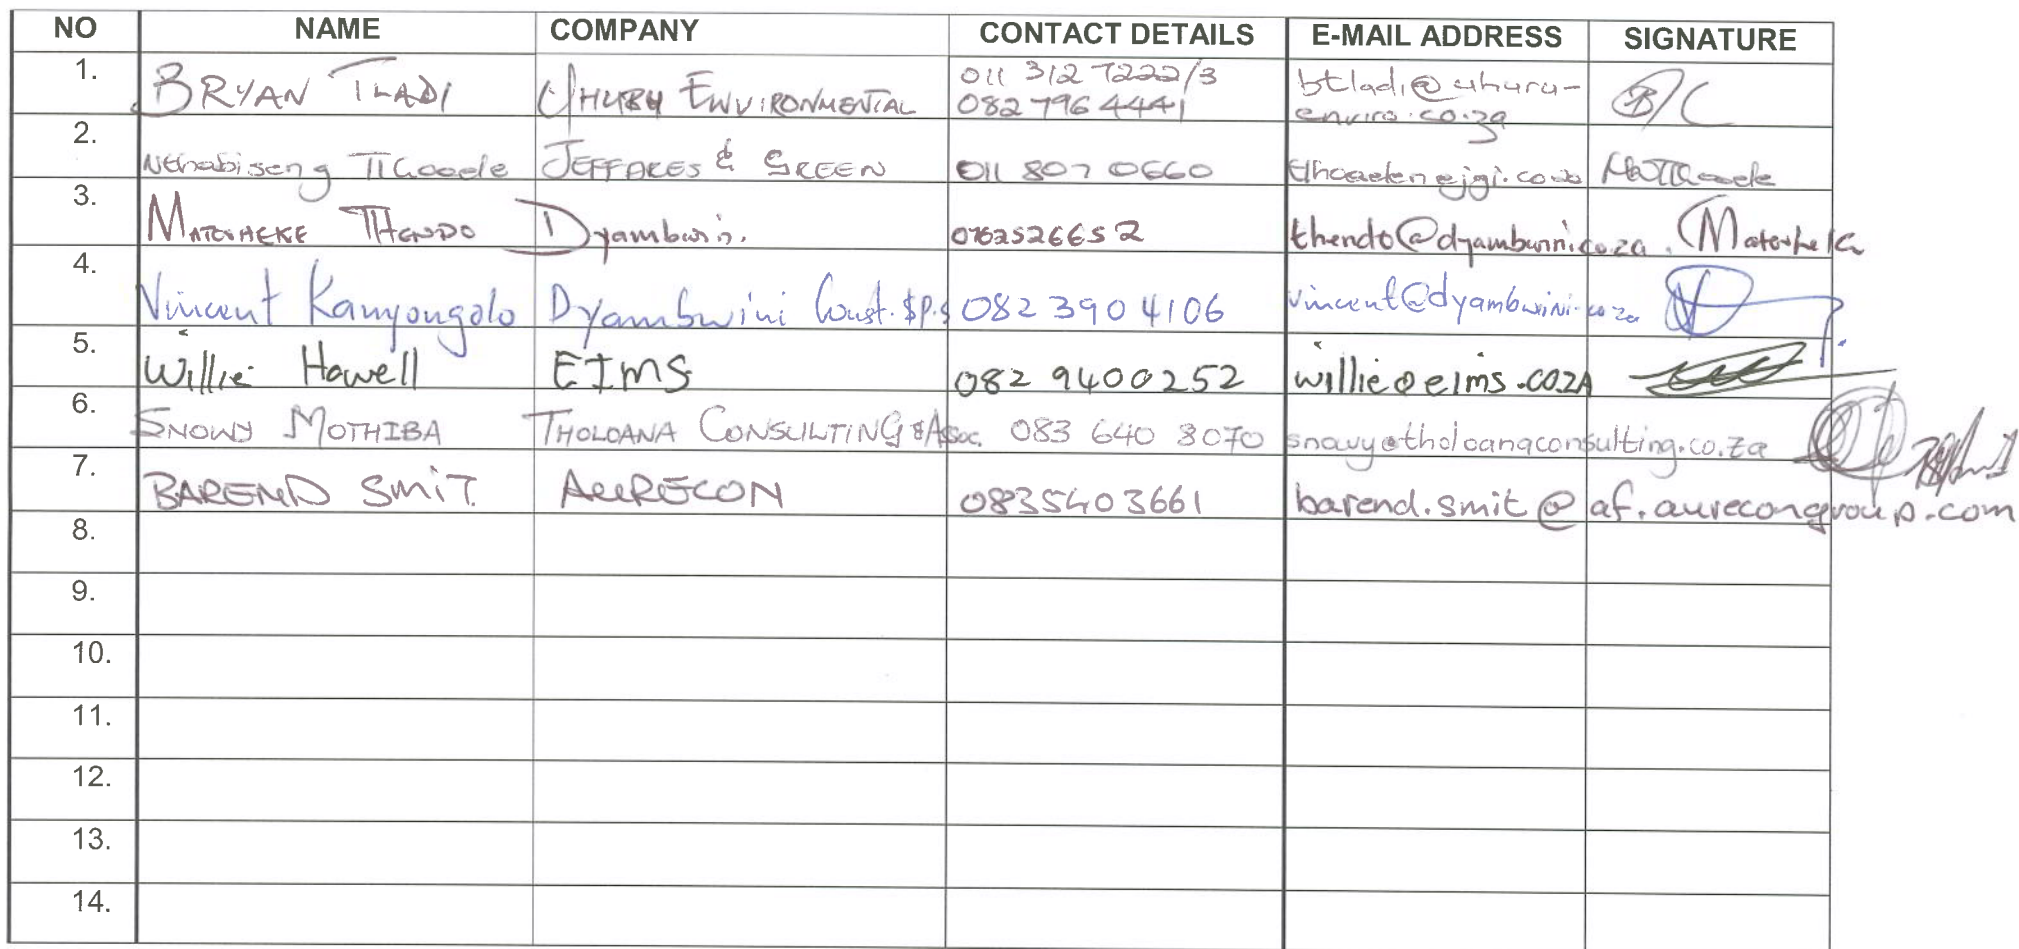 NO NAME COMPANY CONTACT DETAILS E-MAIL ADDRESS SIGNATURE
1. BRYAN TLADI UHURU ENVIRONMENTAL 011 312 7222/3 082 796 4441 btladi@uhuru-enviro.co.za
2. Nthabiseng Tlhoaele JEFFARES & GREEN 011 807 0660
3. MATOVHEKE THENDO Dyambwini. 0762526652 thendo@dyambwini.co.za
4. Vincent Kanyongolo Dyambwini Const. & P.S 082 390 4106 vincent@dyambwini.co.za
5. Willie Howell EIMS 082 9400252 willie@eims.co.ZA
6. SNOWY MOTHIBA THOLOANA CONSULTING & Assoc. 083 640 8070 snowy@tholoanaconsulting.co.za
7. BAREND SMIT. AURECON 0835403661 barend.smit@af.aurecongroup.com
8.
9.
10.
11.
12.
13.
14.